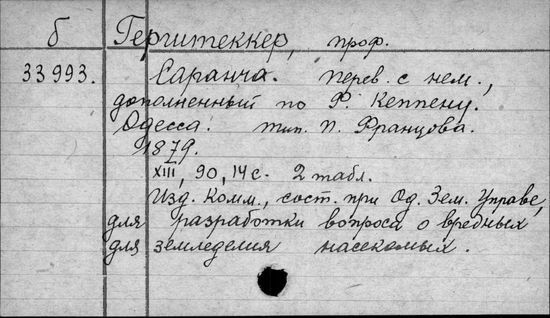 б Герштеккер, проф.
33993. Саранча. перев. с нем.,
дополненный по Ф. Кеппену.
Одесса. тип. П. Францова.
1879.
XIII, 90, 14 с. 2 табл.
Изд. Комм., сост. при Од. Зем. Управе,
для разработки вопроса о вредных
для земледелия насекомых.